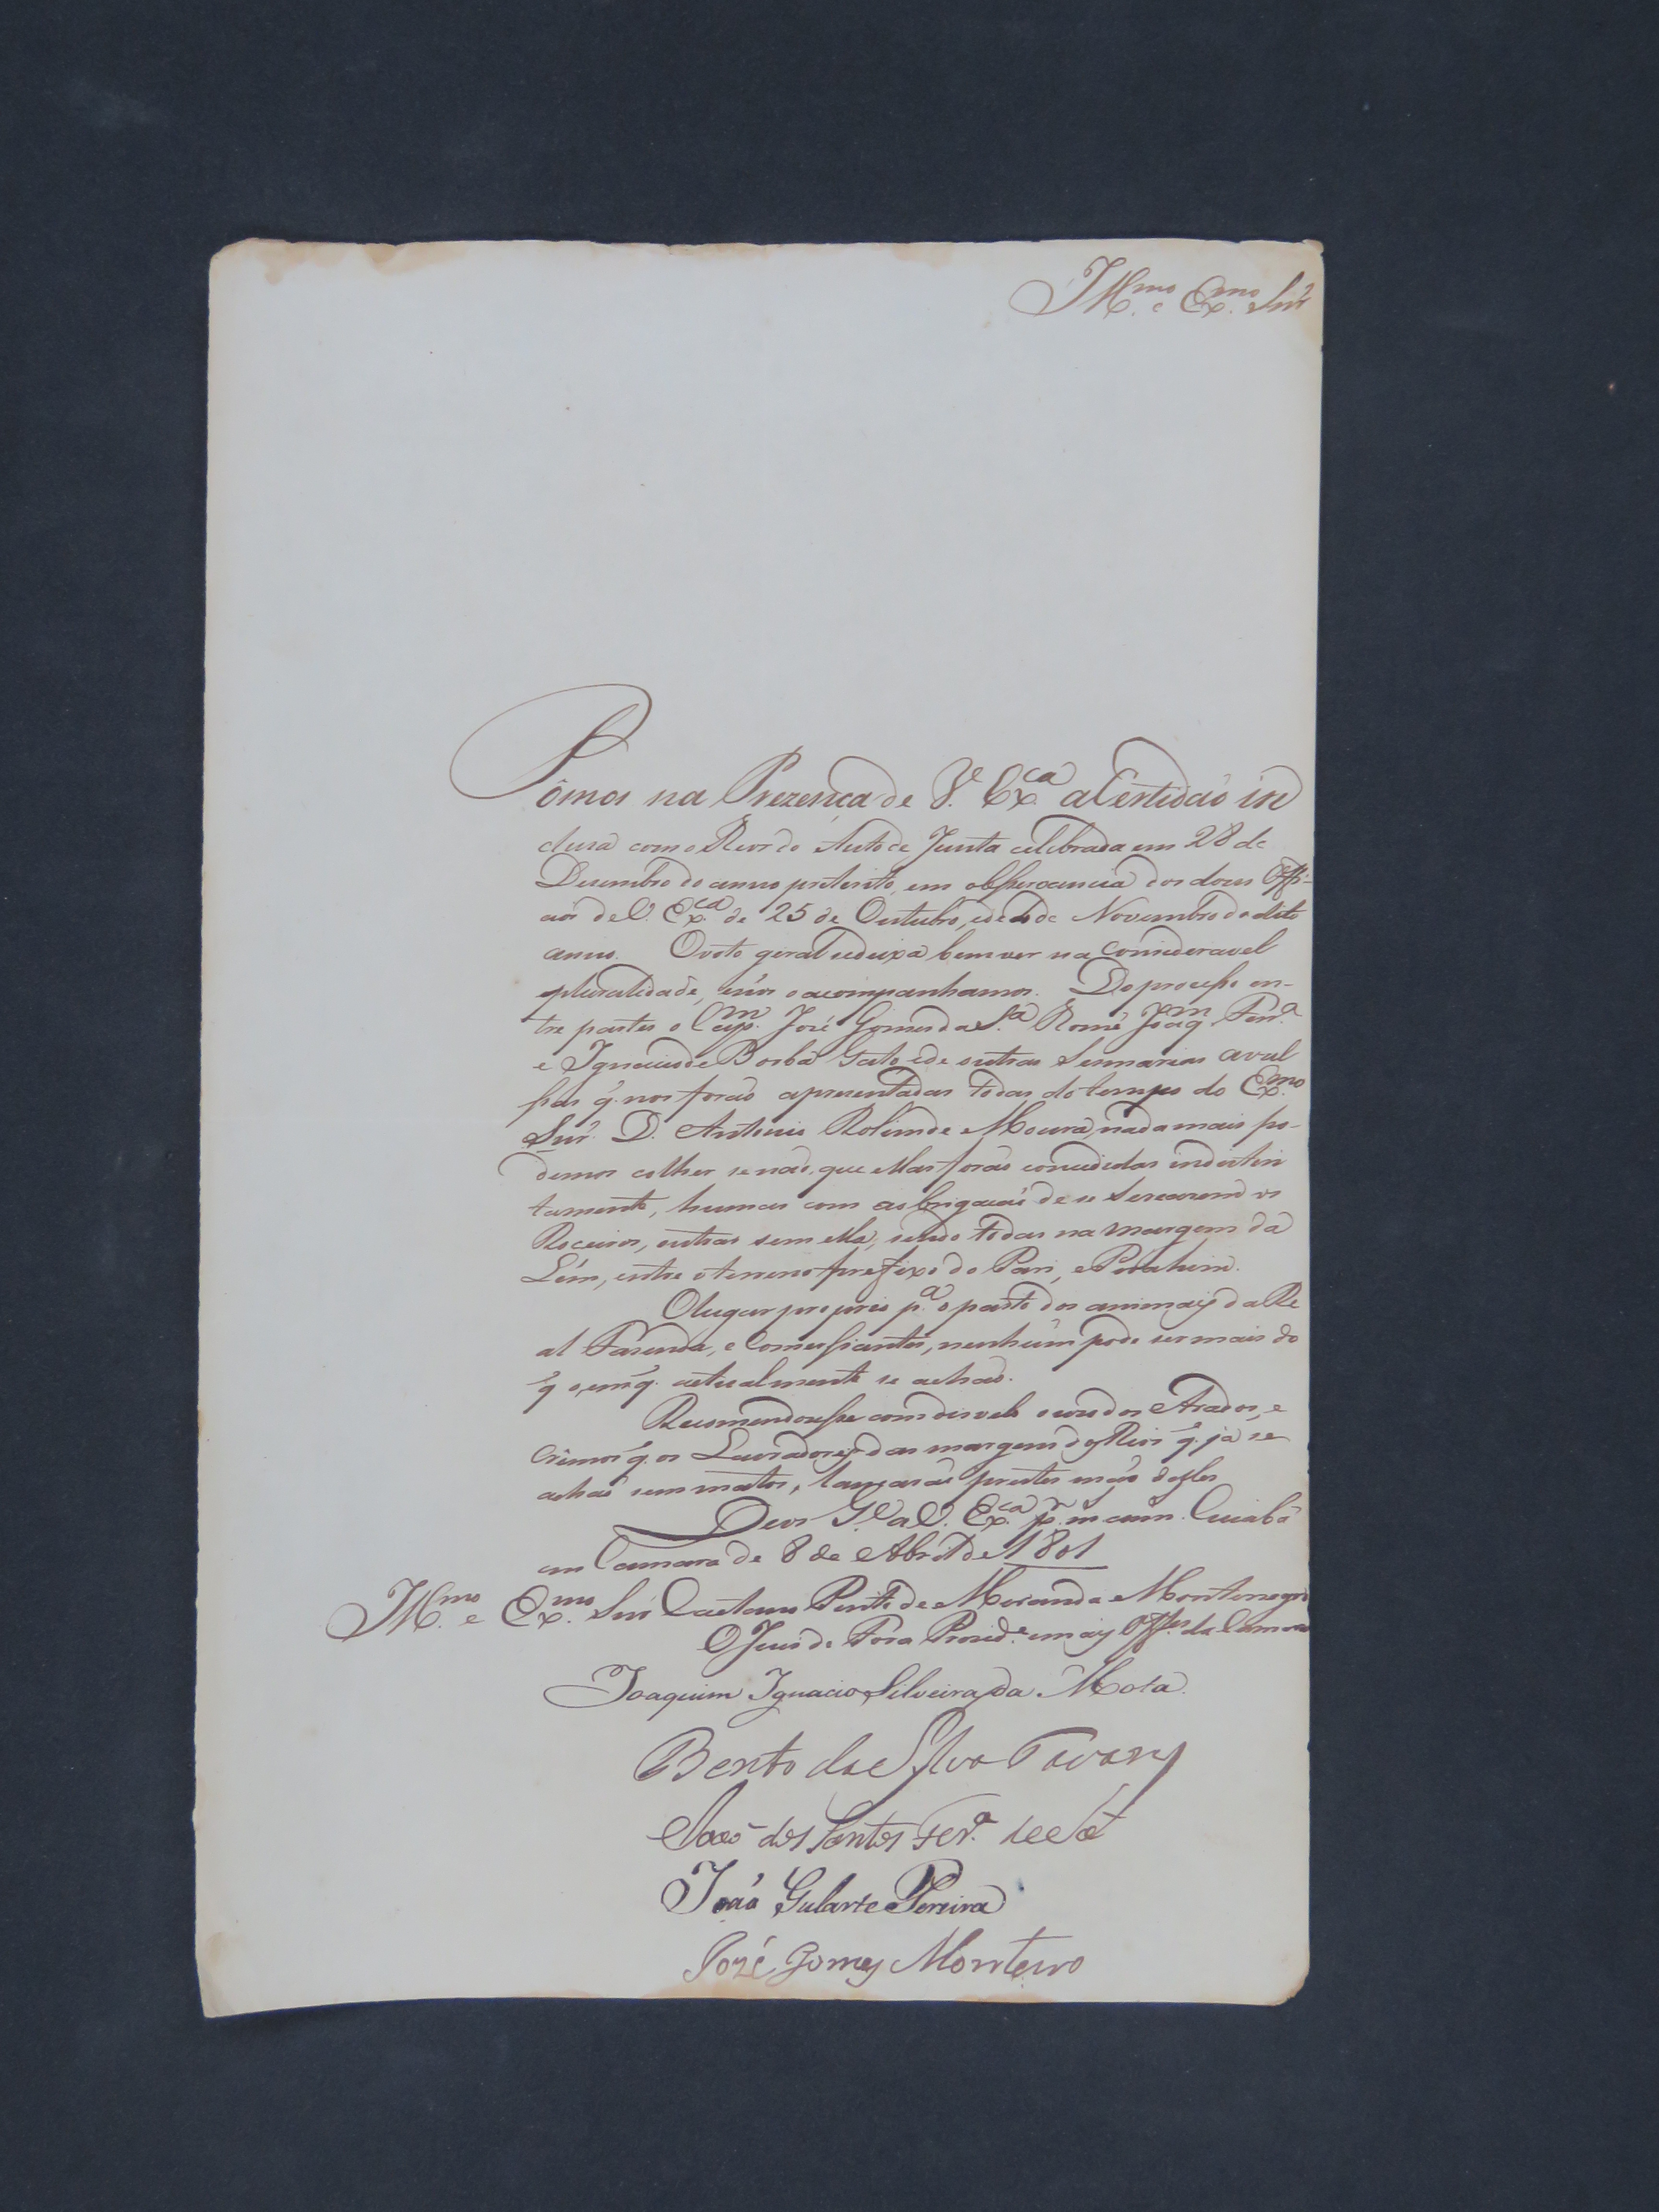 Ill.mo e Ex.mo Snr
Pômos na Prezença de V. Ex.ca a Certidaõ in
cluza com o Theor do Auto de Junta celebrada em 28 de
Dezembro do anno preterito, em observancia dos dous Offi-
cios de V. Ex.ca de 25 de Outubro, e de de Novembro do dito
anno. O voto geral se deixa bem ver na consideravel
pluralidade, e nós o acompanhamos. Do processo en-
tre partes o Cap.m José Gomes da S.a Joaq.m Ferr.a
e Ignacio de Borba Gato e de outras Sesmarias avul
sas q. nos foraõ aprezentadas todas do tempo do Ex.mo
Snr. D. Antonio Rolim de Moura, nada mais po-
demos colher se naõ, que ellas foraõ concedidas indistin
tamente, humas com as de se os
Roceiros, outras sem ella, sendo todas na margem da
Lém, entre o terreno prefixo do Pari, e
O lugar proprio p.a o pasto dos animaes da Re
al Fazenda, e Comerssiantes, nenhum pode ser mais do
q̃ o, em q̃. actualmente se achaõ.
Recomendousse com disvelo o uzo dos Arados, e
crêmos q̃. os Lavradores das margens dos Rios q̃. já se
achaõ sem mattos, lançaraõ prestes maõ delles
Deos G.e a V. Ex.ca p.r m. ann. Cuiabá
em Camara de 8 de Abril de 1801
Ill.mo e Ex.mo Snr Caetano Pinto de Miranda Montenegro
O Juis de Fora Prezid.e e mais Off.es da Camara
Joaquim Ignacio Silveira da Mota
Bento da Sylva Tavares
dos Santos Ferr.a
João Gularte Pereira
Jozé Gomes Monteiro